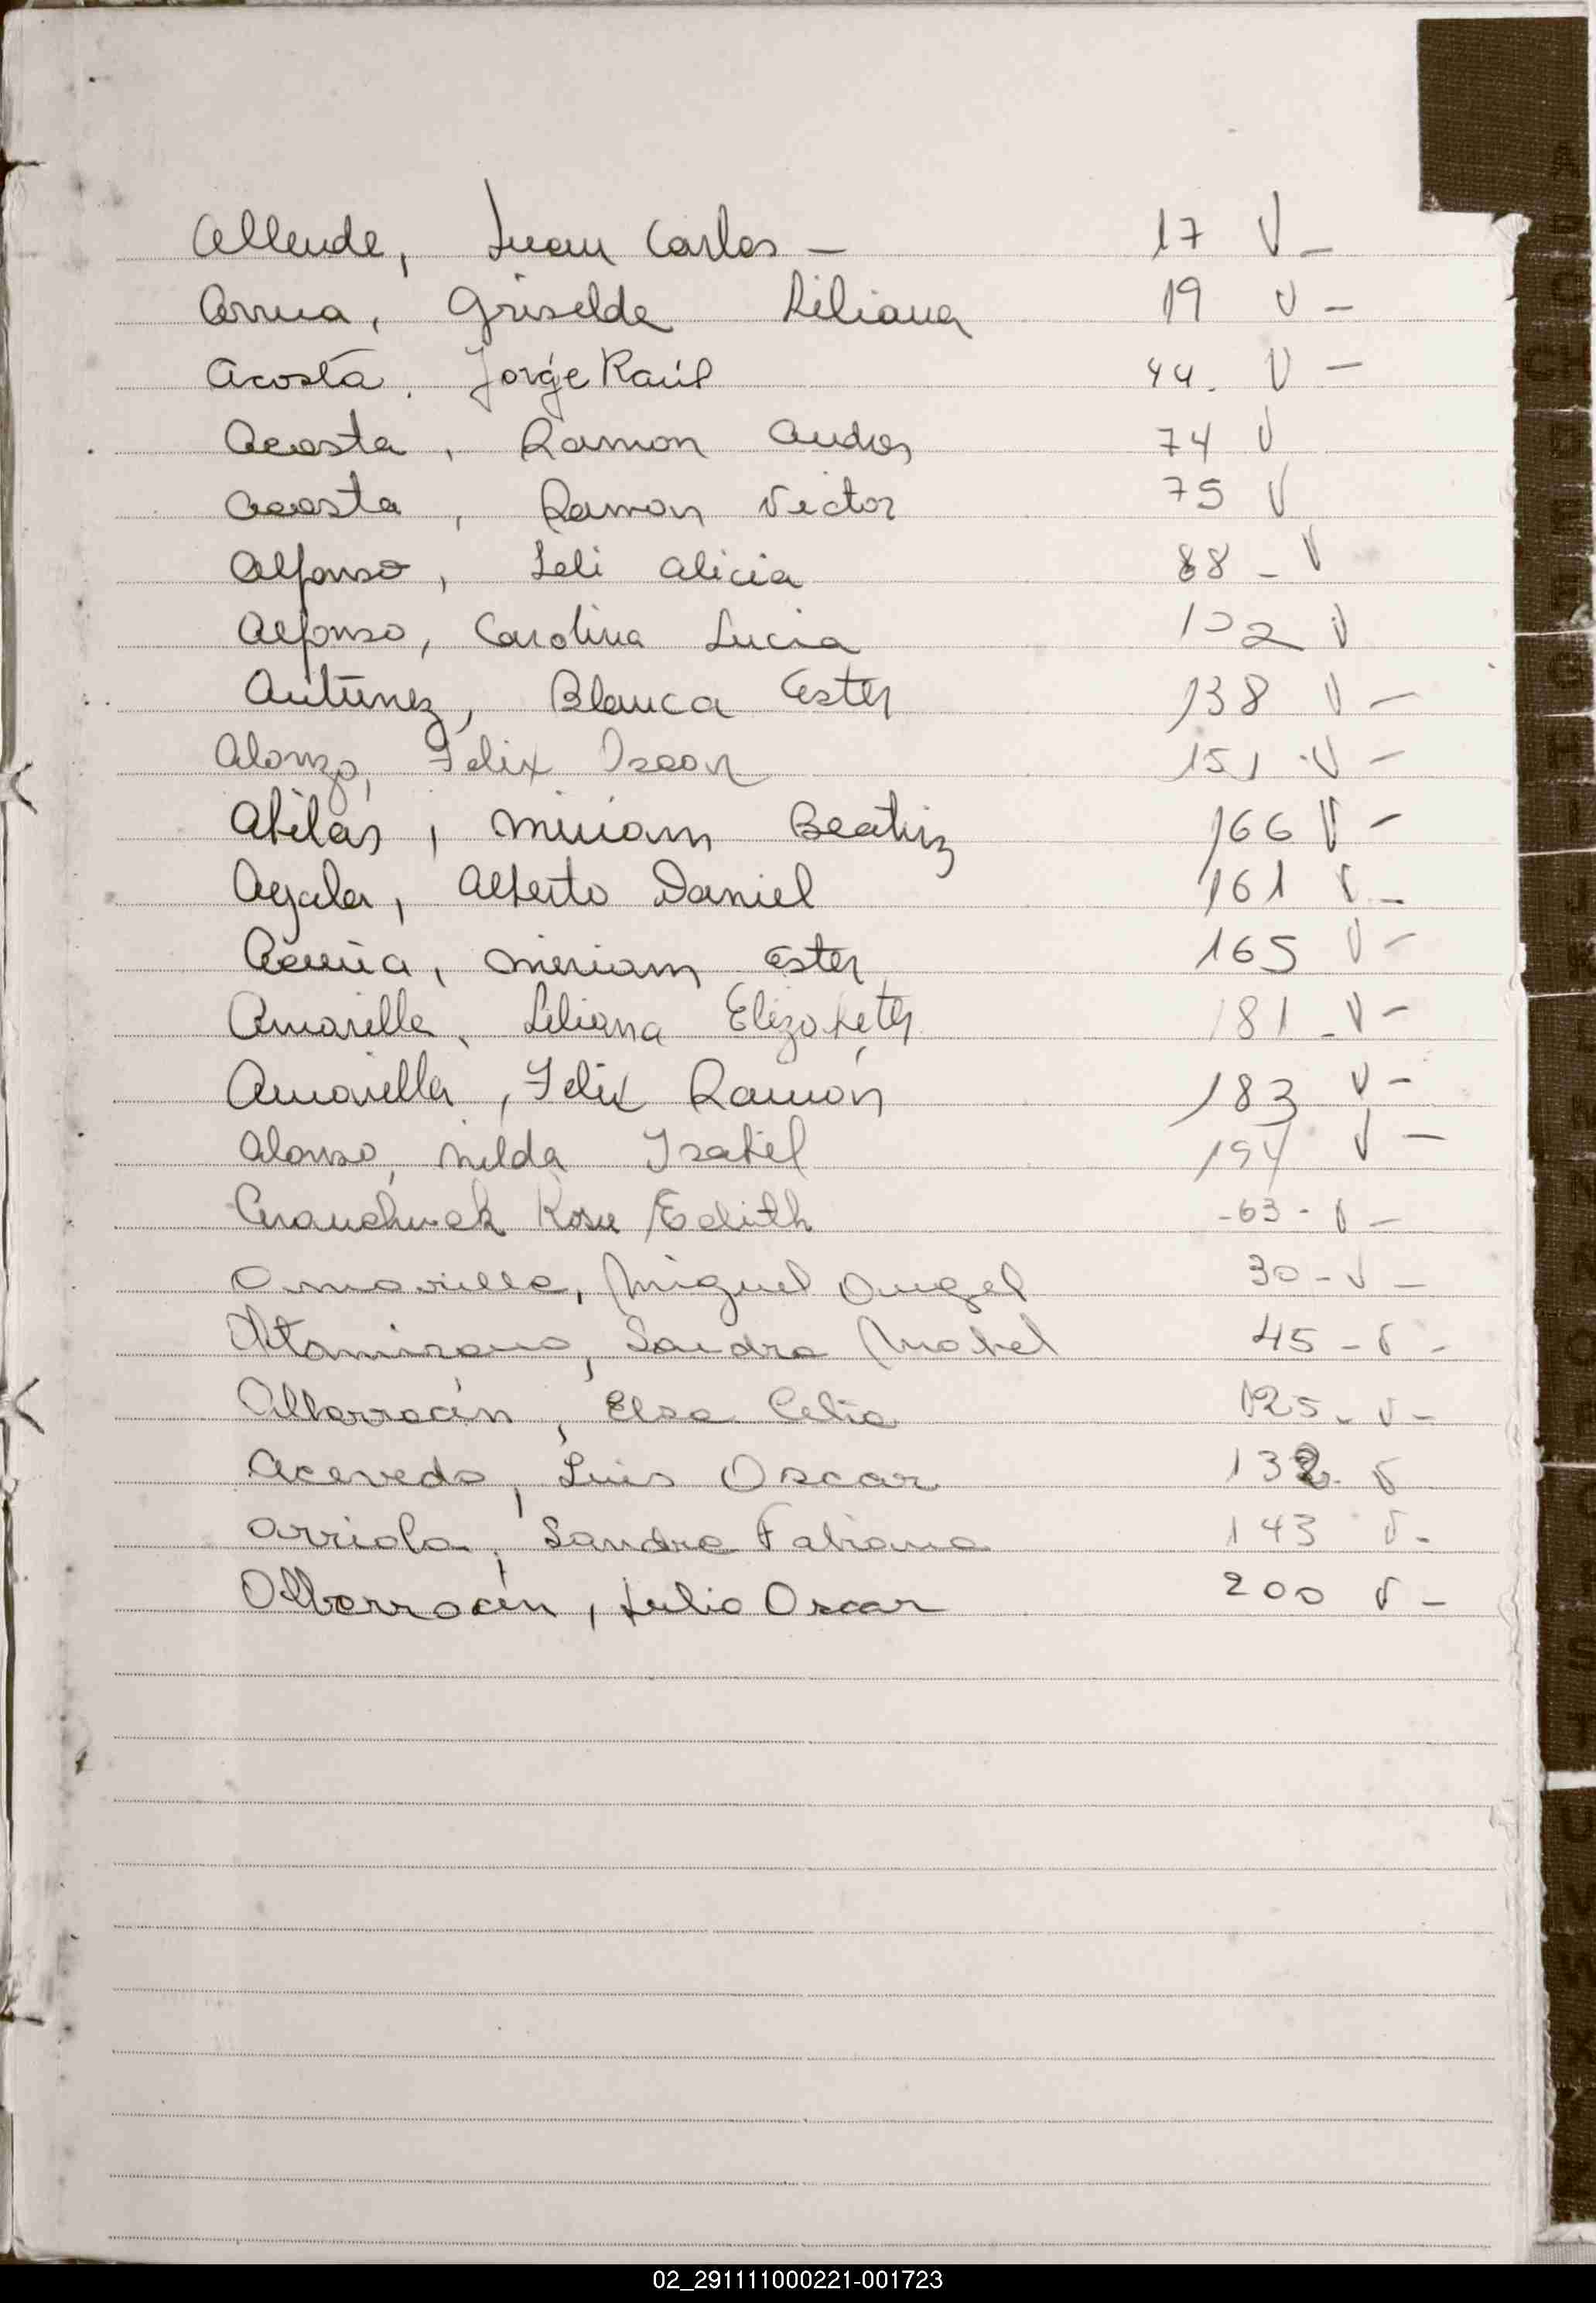 Allende, Juan Carlos - 17 V -
Arrua, Griselda Liliana 19 V -
Acosta, Jorge Raúl 44. V -
Acosta, Ramon Andres 74 V
Acosta, Ramon Victor 75 V
Alfonso, Leli Alicia 88 - V
Alfonso, Carolina Lucia 102 V
Antúnez, Blanca Ester 138 V -
Alonzo, Felix Oscar 151 V -
Miriam Beatriz 166 V -
Ayala, Alberto Daniel 161 V -
Acuña, Miriam Ester 165 V -
Amarilla, Liliana Elizabeth 181 - V -
Amarilla, Felix Ramón 183 V -
Alonso, Nilda Isabel 194 V -
Rosa Edith - 63 - V -
Amarilla, Miguel Angel 30 - V -
Altamirano, Sandra Mabel 45 - V -
Albarracín, Elsa Celia 125 - V -
Acevedo, Luis Oscar 132. V
Arriola, Sandra Fabiana 143 V -
Albarracín, Julio Oscar 200 V -
02_291111000221-001723